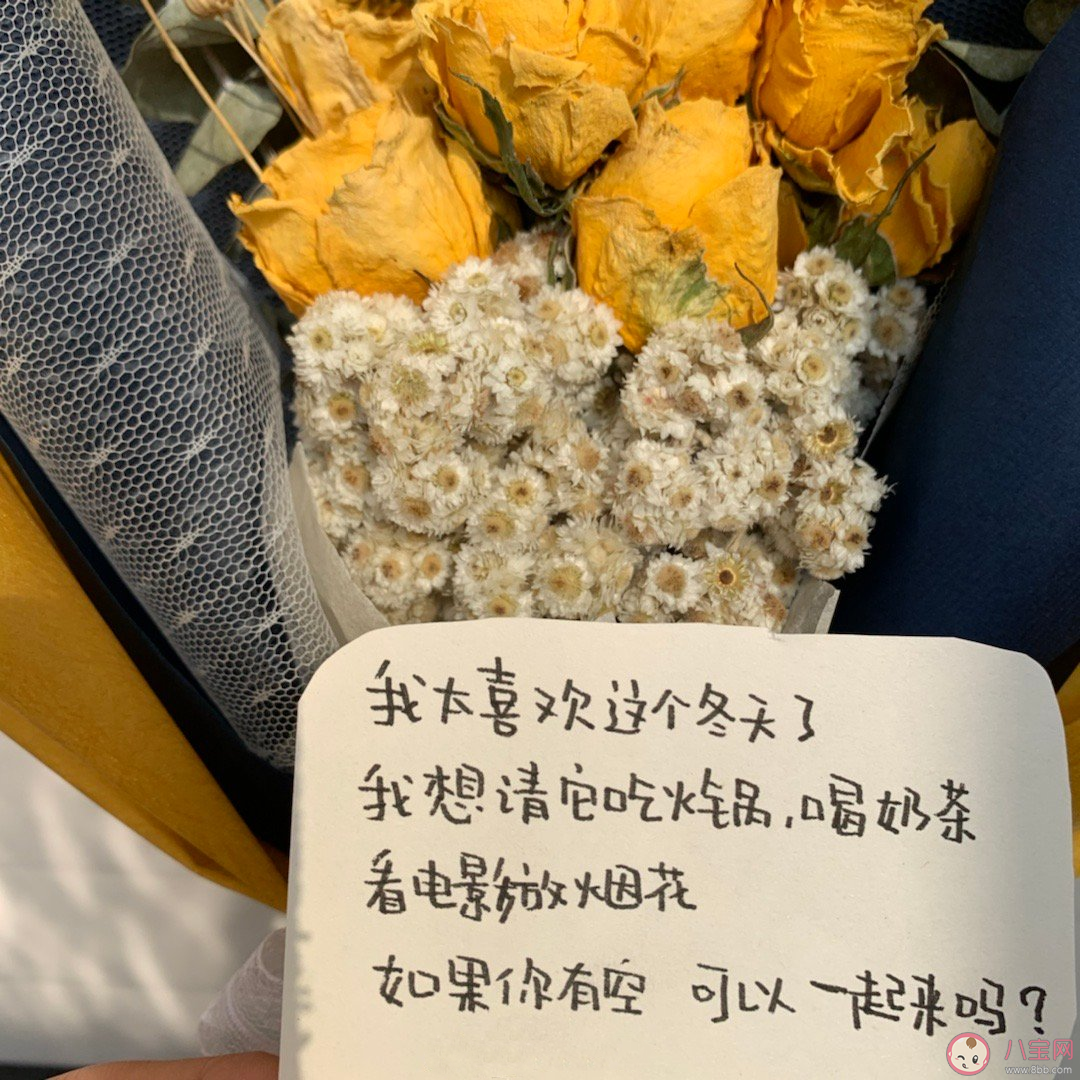 我太喜欢这个冬天了
我想请它吃火锅,喝奶茶
看电影放烟花
如果你有空 可以一起来吗?
八宝网
www.8bb.com